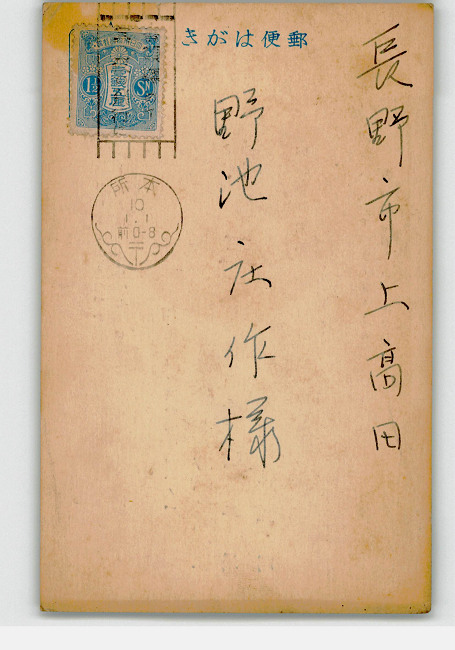 郵便はがき
長野市上高田
野池庄作様
本所
10
1.1
前0-8
1½ Sn